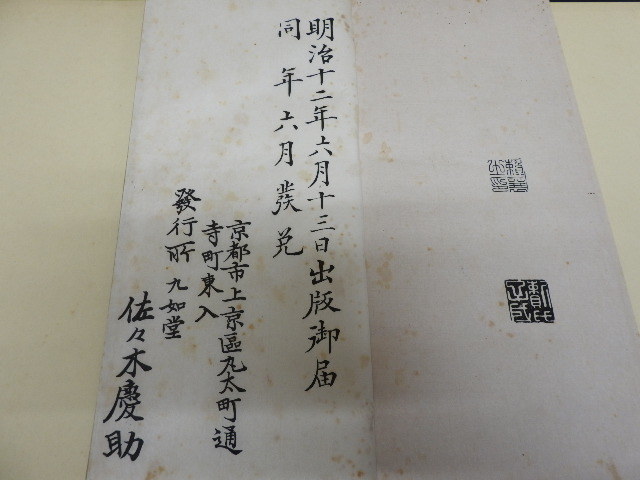 明治十二年六月十三日出版御届
同年六月發兌
京都市上京區丸太町通
寺町東入
發行所九如堂
佐々木慶助